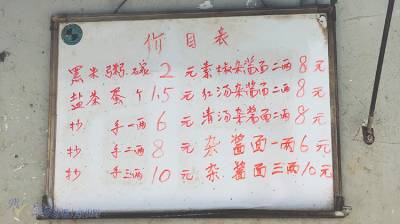 价目表
黑米粥/碗 2元 素椒杂酱面二两 8元
盐茶蛋/个 1.5元 红汤杂酱面二两 8元
抄手一两 6元 清汤杂酱面二两 8元
抄手二两 8元 杂酱面一两 6元
抄手三两 10元 杂酱面三两 10元